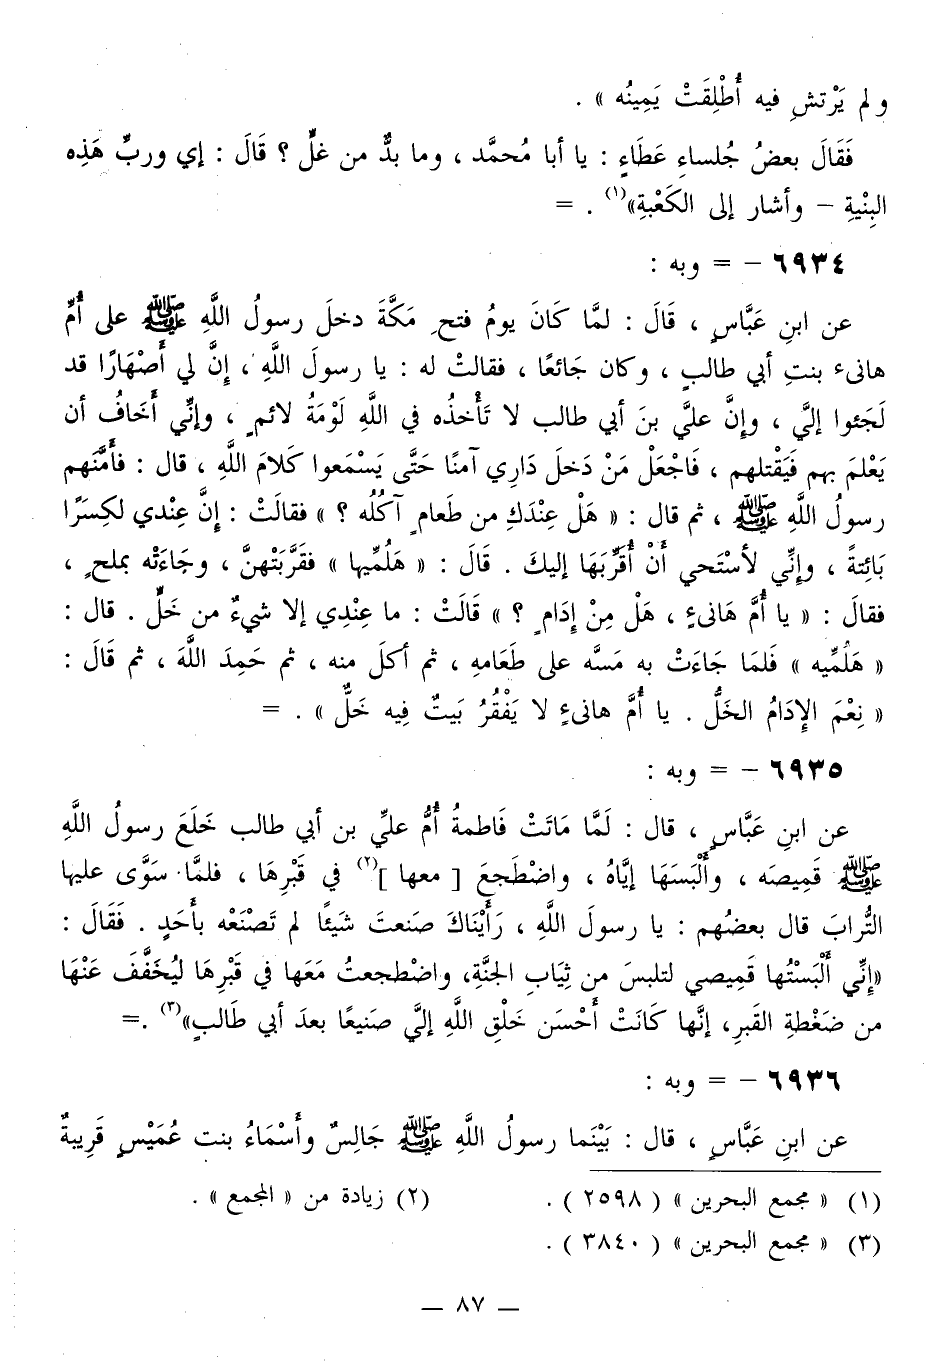 ولم يَرْتشِ فيه أُطْلِقَتْ يَمِينُه » .
فَقَالَ بعضُ جُلساءِ عَطَاءٍ : يا أبا مُحمَّد ، وما بدٌّ من غلٍّ ؟ قَالَ : إي وربِّ هَذِه
البِنْيةِ – وأشار إلى الكَعْبةِ»(١) . =
٦٩٣٤ – = وبه :
عن ابنِ عَبَّاسٍ ، قَالَ : لمَّا كَانَ يومُ فتحِ مَكَّةَ دخلَ رسولُ اللَّهِ ﷺ على أُمِّ
هانىء بنتِ أبي طالبٍ ، وكان جَائعًا ، فقالتْ له : يا رسولَ اللَّهِ ، إِنَّ لي أَصْهَارًا قد
لَجَئوا إليَّ ، وإِنَّ عليَّ بنَ أبي طالب لا تَأْخذُه في اللَّهِ لَوْمَةُ لائمٍ ، وإنِّي أَخَافُ أن
يَعْلمَ بهم فيَقْتلهم ، فَاجْعَلْ مَنْ دَخلَ دَارِي آمنًا حَتَّى يَسْمَعوا كَلامَ اللَّهِ ، قال : فأَمَّنَهم
رسولُ اللَّهِ ﷺ ، ثم قال : « هَلْ عِنْدَكِ من طَعامٍ آكُلُه ؟ » فقالَتْ : إِنَّ عِنْدي لكِسَرًا
بَائِتةً ، وإنِّي لأسْتَحي أَنْ أُقرِّبَهَا إليكَ . قَالَ : « هَلُمِّيها » فقَرَّبَتْهنَّ ، وجَاءَتْه بملحٍ ،
فقالَ : « يا أُمَّ هَانىءٍ ، هَلْ مِنْ إِدَامٍ ؟ » قَالَتْ : ما عِنْدِي إلا شيءٌ من خَلٍّ . قال :
« هَلُمِّيه » فَلمَا جَاءَتْ به مَسَّه على طَعَامهِ ، ثم أكلَ منه ، ثم حَمِدَ اللَّهَ ، ثم قَالَ :
« نِعْمَ الإِدَامُ الخَلُّ . يا أُمَّ هانىءٍ لا يَفْقُرُ بَيتٌ فِيه خَلٌّ » . =
٦٩٣٥ – = وبه :
عن ابنِ عَبَّاسٍ ، قال : لَمَّا مَاتَتْ فَاطمةُ أُمُّ عليِّ بن أبي طالب خَلَعَ رسولُ اللَّهِ
ﷺ قَمِيصَه ، وأَلْبَسَهَا إيَّاهُ ، واضْطَجعَ [ معها ](٢) في قَبْرِهَا ، فلمَّا سَوَّى عليها
التُّرابَ قال بعضُهم : يا رسولَ اللَّهِ ، رَأَيْنَاكَ صَنعتَ شَيئًا لم تَصْنَعْه بأَحَدٍ . فَقَالَ :
«إِنِّي أَلْبَسْتُها قَمِيصي لتلبسَ من ثِيَابِ الجنَّةِ، واضْطجعتُ مَعَها في قَبْرِهَا ليُخَفَّفَ عَنْهَا
من ضَغْطةِ القَبرِ، إنَّها كَانَتْ أَحْسَن خَلْقِ اللَّهِ إليَّ صَنيعًا بعدَ أبي طَالبٍ»(٣) .=
٦٩٣٦ – = وبه :
عن ابنِ عَبَّاسٍ ، قال : بَيْنَما رسولُ اللَّهِ ﷺ جَالِسٌ وأَسْمَاءُ بنت عُمَيْسٍ قَرِيبةٌ
(١) « مجمع البحرين » ( ٢٥٩٨ ) . (٢) زيادة من « المجمع » .
(٣) « مجمع البحرين » ( ٣٨٤٠ ) .
– ٨٧ –